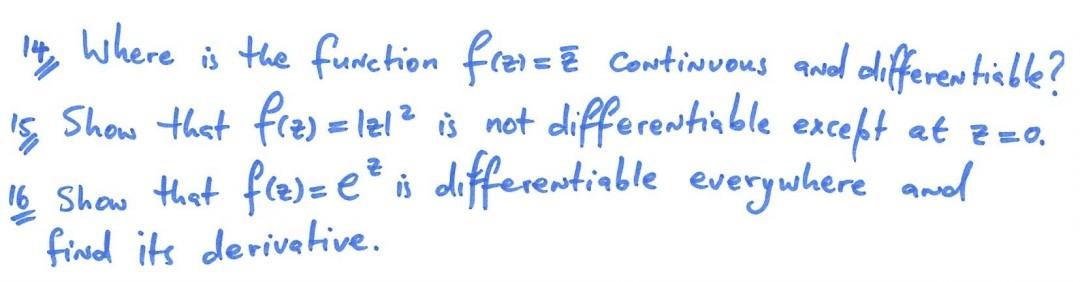 14, Where is the function f(z) = z̅ continuous and differentiable?
15, Show that f(z) = |z|² is not differentiable except at z=0.
16 Show that f(z) = e^z is differentiable everywhere and
find its derivative.